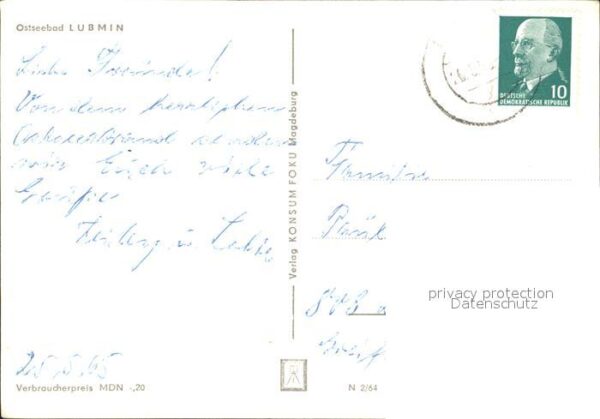 Ostseebad LUBMIN
Liebe Freunde!
Von dem herrlichen
Ostseestrand senden
wir Euch viele
Grüße
u.
25.5.65
Verbraucherpreis MDN -,20
Verlag KONSUM FOKU Magdeburg
N 2/64
10
DEUTSCHE
DEMOKRATISCHE REPUBLIK
Familie
privacy protection
Datenschutz